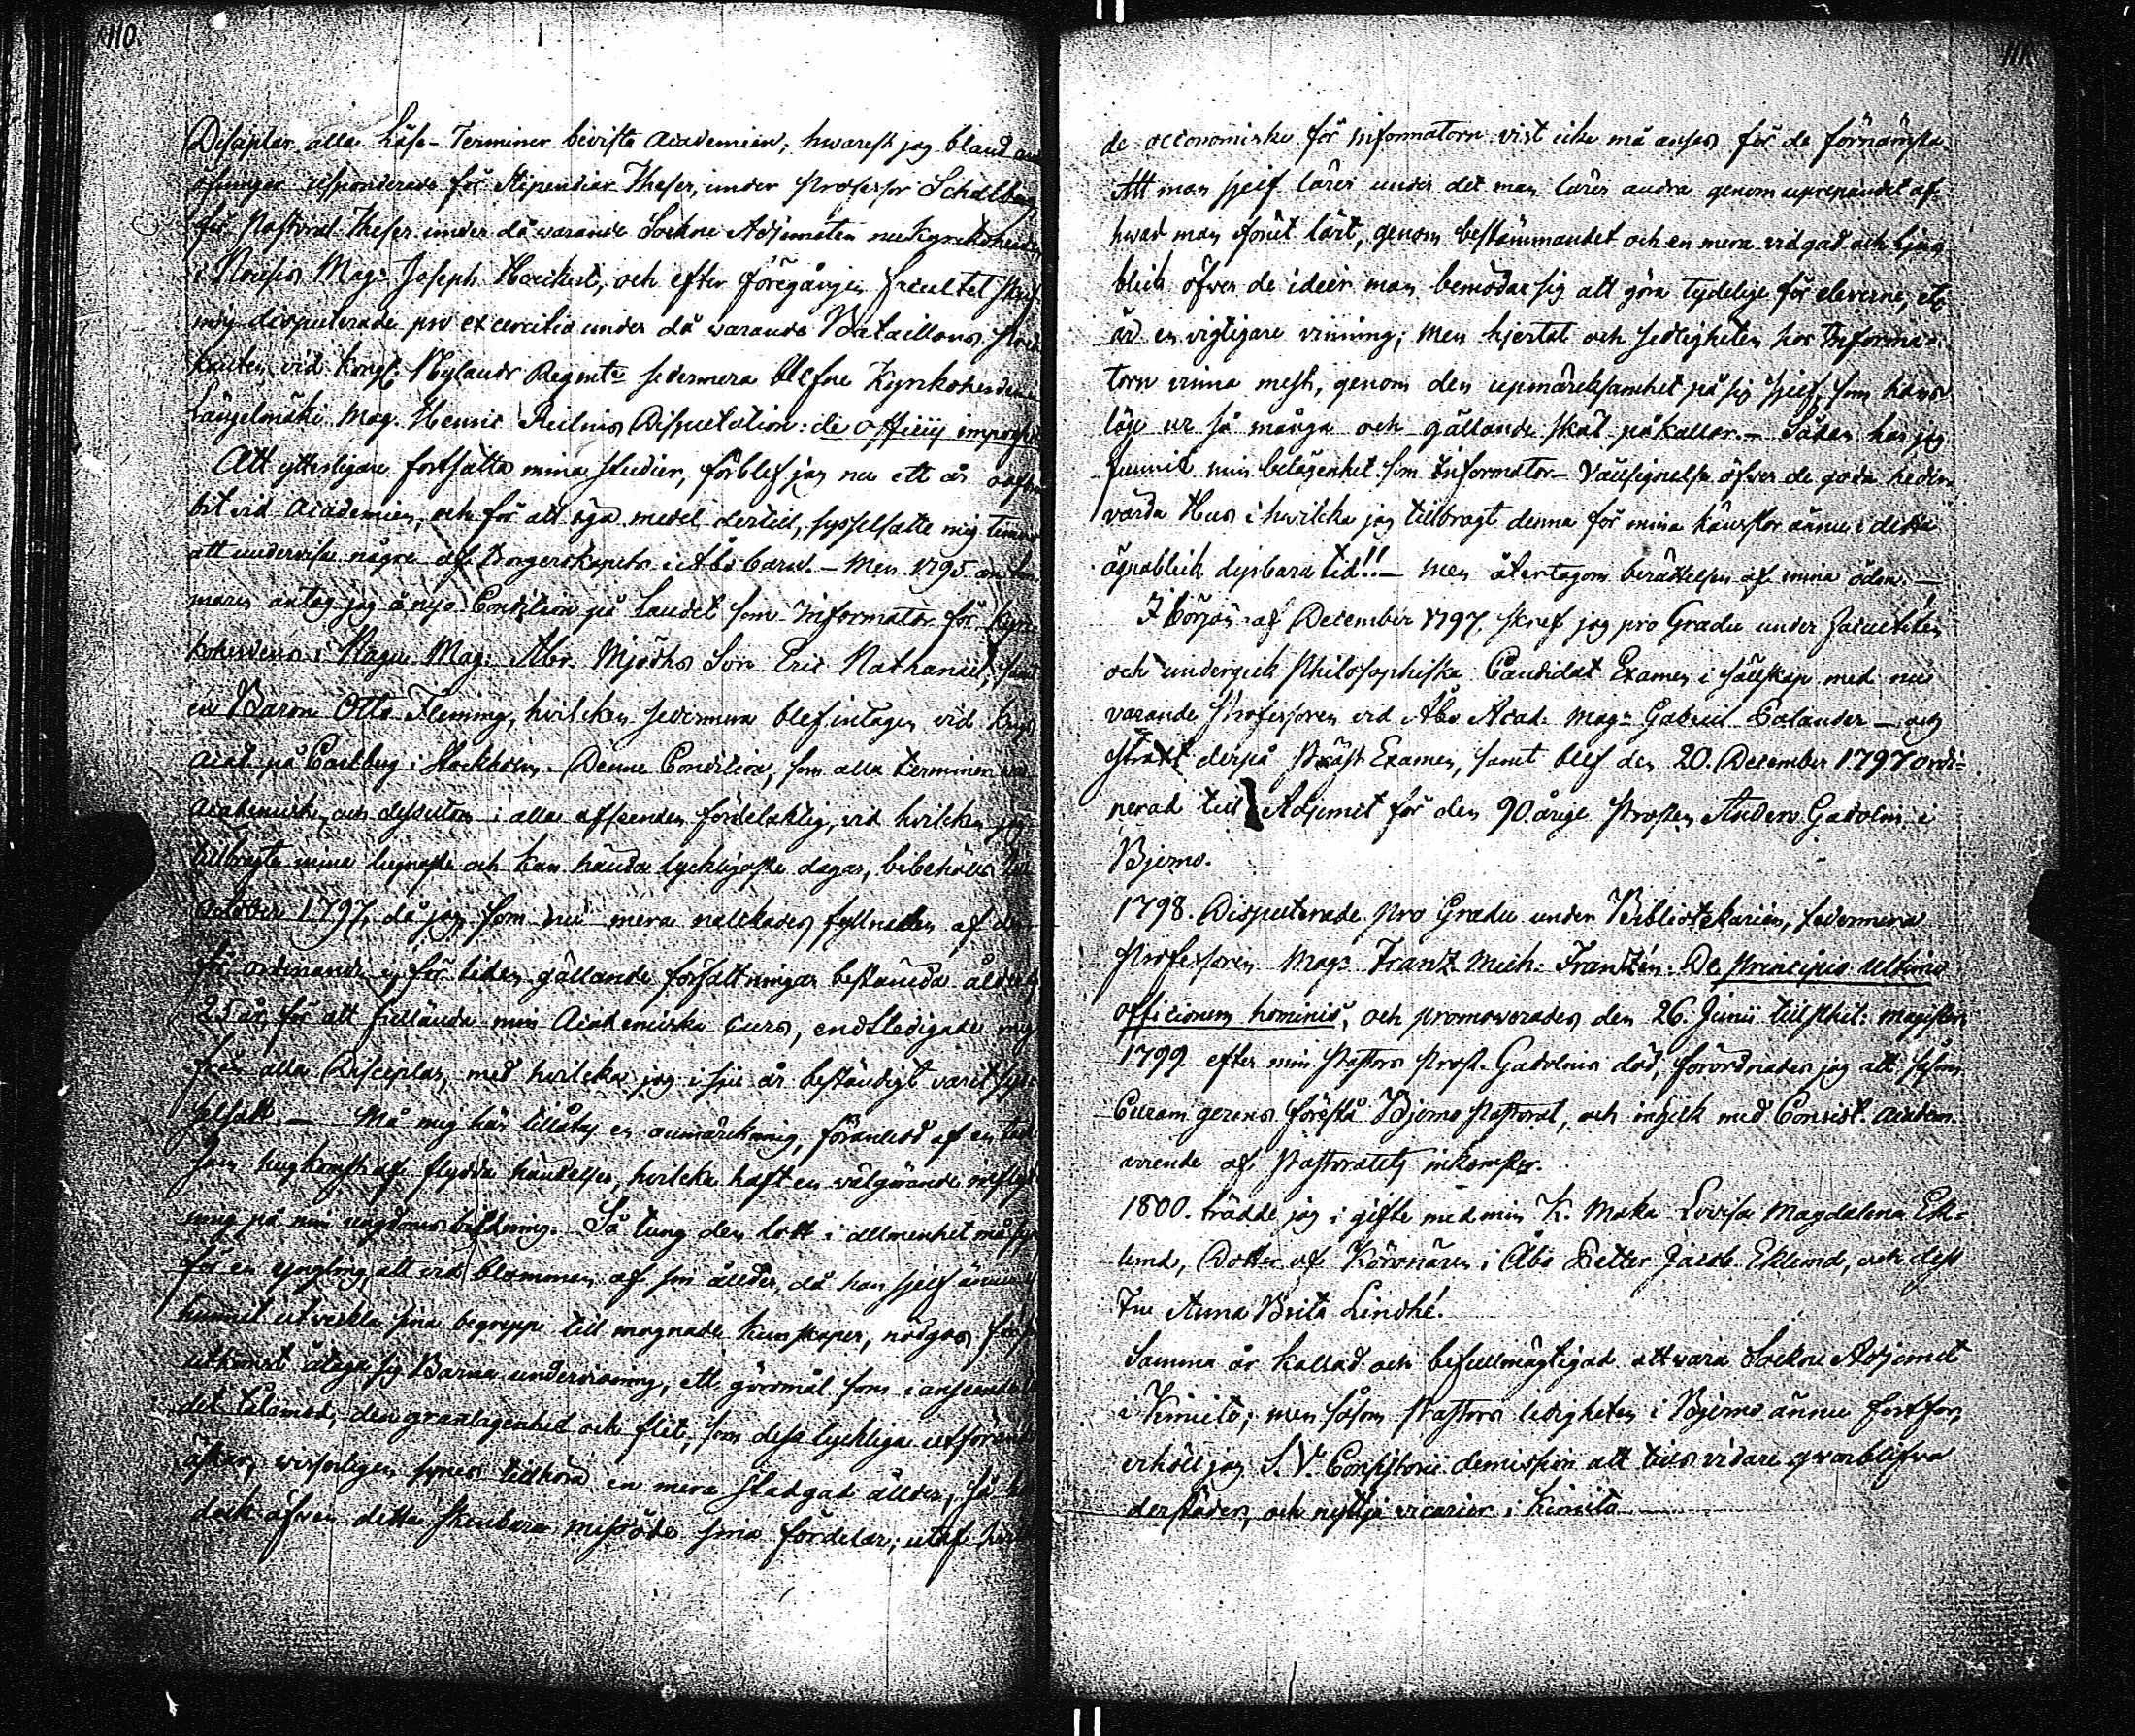 110.
Disciplar alla Läse-Terminer bevista Academien; hwarest jag bland
öfningar responderade för Stipendiae Theser, under Professor Schalberg,
för Pastoral-Theser under då warande Sockne Adjuncten nu Kyrkoherden
i Nousis Mag: Joseph Hæckert, och efter föregången Facultet
mig disputerade pro exercitio under då warande Bataillons
kanten vid Kongl: Nylands Regmte sedermera blefne Kyrkoherden i
Längelmäki Mag. Henric Disputation: de officiis
Att ytterligare fortsätta mina studier, förblef jag nu ett år
bit vid Academien, och för att äga medel dertill, sysselsatte mig
att undervisa någre af Borgerskapets i Åbo barn. – Men 1795 om
maren antog jag å nyo Condition på Landet som Informator för Kyr-
koherdens i Nagu Mag: Abr. Mjödhs Son Eric Nathanael, samt
en Baron Otto Fleming, hvilcken sedermera blef intagen vid Krigs
Acad. på Carlberg i Stockholm. Denne Condition, som alla terminer war
Academisk, och dessutom i alla afseenden fördelaktig, vid hvilcken jag
tillbragte mina lugnaste och kan hända lyckligaste dagar, bibehölls till
October 1797, då jag som nu mera nalckades fyllnaden af den
för ordinandi ej för tiden gällande författningar bestämda ålder
25 år, för att fullända min Academiska Curs, endtledigade mig
från alla Disciplar, med hvilcka jag i sju år beständigt varit sys-
selsatt. – Må mig här tillåtas en anmärckning, föranledd af en
sam hugkomst af flydda händelser, hvilcka haft en välgörande
ning på min ungdoms bildning. Så tung den lott i allmenhet må
för en yngling, att vid blomman af sin ålder, då han sjelf ännu
hunnit utveckla sina begrepp till mognade kunskaper, nödgas för
utkomst åtaga sig Barna undervisning, ett göromål som i anseende
det tålamod, den granlagenhet och flit, som dess lyckliga utförande
äskar, wisserligen synes tillhöra en mera stadgad ålder, så
dock äfven detta skenbara missöde sina fördelar; utaf
111.
de oeconomiske för Informatorn vist icke må anses för de förnämsta.
Att man sjelf lärer under det man lärer andra genom uprepandet af
hvad man förut lärt, genom bestämmandet och en mera vidgad och ljus
blick öfver de idéer man bemödar sig att göra tydelige för eleverne, etc
är en vigtigare vinning; men hjertat och sedligheten hos Informa-
torn vinna mest, genom den upmärcksamhet på sig sjelf, som hans
läge ur så många och gällande skäl påkallar. – Sådan har jag
funnit min belägenhet som Informator – Välsignelse öfver de goda heder-
värda Hus i hvilcka jag tillbragt denna för mina känslor ännu i detta
ögnablick dyrbara tid!! – Men återtagom berättelsen af mina öden. –
I början af December 1797. skref jag pro Gradu under Faculteten
och undergick Philosophiska Candidat Examen i sällskap med nu
varande Professoren vid Åbo Acad: Mag: Gabriel Palander – och
straxt derpå Præst Examen, samt blef den 20. December 1797 ordi-
nerad till Adjunct för den 90 årige Prosten Anders Gadolin i
Bjerno.
1798. Disputerade pro Gradu under Bibliotekarien, sedermera
Professoren Mag: Franz. Mich: Franzén: De principio ultimo
officiorum hominis, och promoverades den 26. Junii till Phil: Magister.
1799 efter min Pastors Prost. Gadolins död, förordnades jag att såsom
Curam gerens förestå Bjerno Pastorat, och ingick med Consist. Academ.
arrende af Pastoratets inkomster.
1800. trädde jag i gifte med min K. Maka Lovisa Magdalena Ek-
lund, Dotter af Körsnären i Åbo Petter Jacob Eklund, och dess
Fru Anna Brita Lindhé.
Samma år kallad och befullmägtigad att vara Sockne Adjunct
i Kimito; men såsom Pastors ledigheten i Bjerno ännu fortfor,
erhöll jag S. V. Consistorii demission att tills vidare qvarblifva
derstädes, och nyttja vicarier i Kimito –